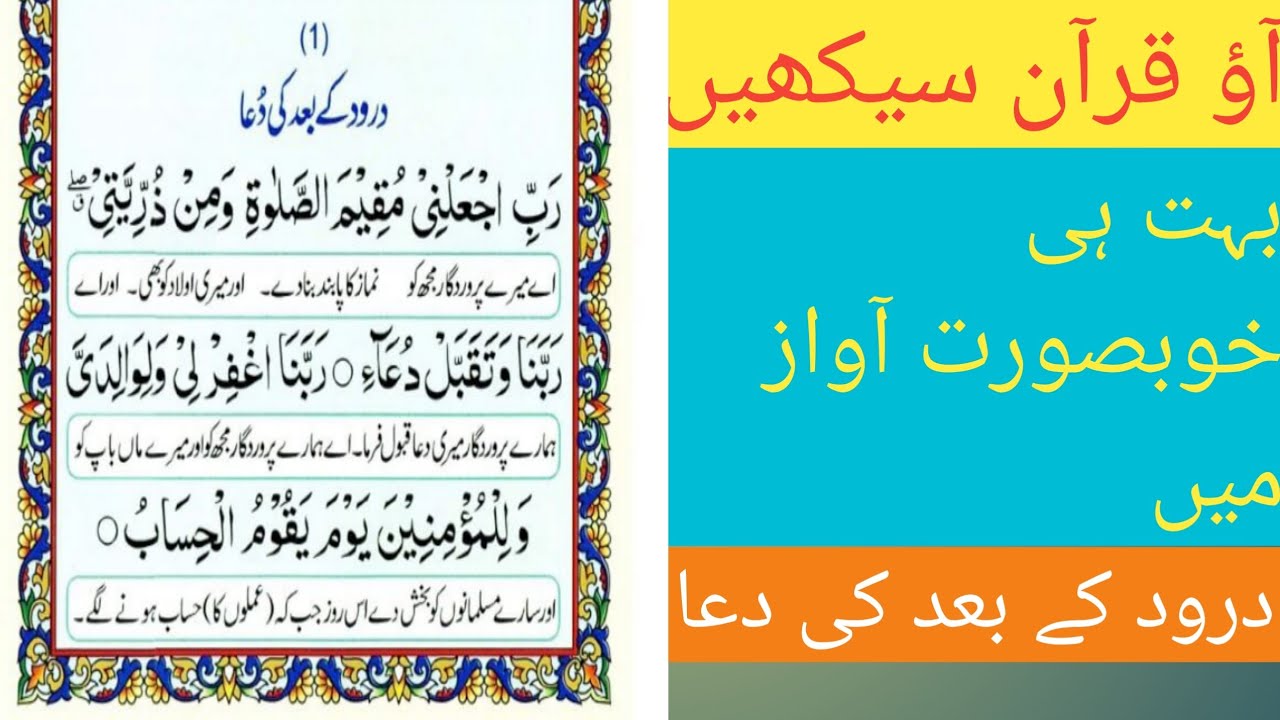 (1)
درود کے بعد کی دُعا
رَبِّ اجْعَلْنِیْ مُقِیْمَ الصَّلٰوةِ وَمِنْ ذُرِّیَّتِیْ ۖق
اے میرے پروردگار مجھ کو نماز کا پابند بنا دے۔ اور میری اولاد کو بھی۔ اور اے
رَبَّنَا وَتَقَبَّلْ دُعَآءِ ○ رَبَّنَا اغْفِرْ لِیْ وَلِوَالِدَیَّ
ہمارے پروردگار میری دعا قبول فرما۔ اے ہمارے پروردگار مجھ کو اور میرے ماں باپ کو
وَلِلْمُؤْمِنِیْنَ یَوْمَ یَقُوْمُ الْحِسَابُ ○
اور سارے مسلمانوں کو بخش دے اس روز جب کہ (عملوں کا) حساب ہونے لگے۔
آؤ قرآن سیکھیں
بہت ہی
خوبصورت آواز
میں
درود کے بعد کی دعا